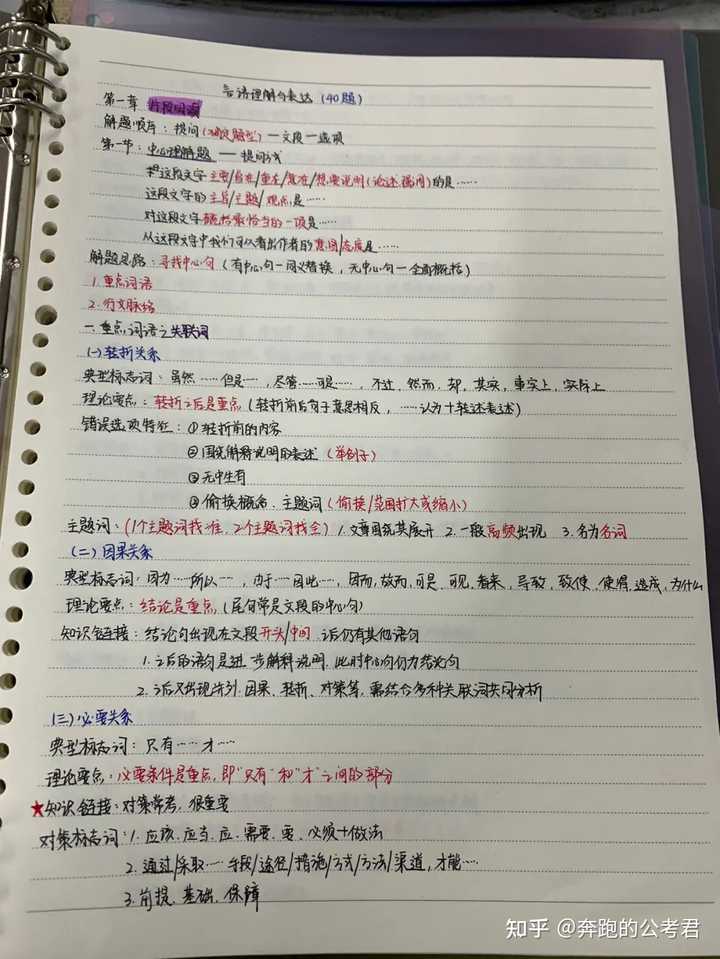 言语理解与表达（40题）
第一章 片段阅读
解题顺序：提问（确定题型）—文段—选项
第一节：中心理解题 — 提问方式
这段文字主要/旨在/重在/意在/想要说明（论述、强调）的是……
这段文字的主旨/主题/观点是……
对这段文字概括最恰当的一项是……
从这段文字中我们可以看出作者的意图/态度是……
解题思路：寻找中心句（有中心句—同义替换，无中心句—全面概括）
1. 重点词语
2. 行文脉络
一、重点词语之关联词
（一）转折关系
典型标志词：虽然……但是…，尽管……可是…，不过、然而、却、其实、事实上、实际上
理论要点：转折之后是重点（转折前后句子意思相反，……认为+转述表述）
错误选项特征：①转折前的内容
②围绕解释说明的表述（举例子）
③无中生有
④偷换概念、主题词（偷换/范围扩大或缩小）
主题词：（1个主题词找准，2个主题词找全）1. 文章围绕其展开 2. 一般高频出现 3. 多为名词
（二）因果关系
典型标志词：因为……所以……，由于……因此……，因而、故而、可是、可见、看来、导致、致使、使得、造成、为什么
理论要点：结论是重点（尾句常是文段的中心句）
知识链接：结论句出现在文段开头/中间 之后仍有其他语句
1. 之后的语句是进一步解释说明，此时中心句仍为结论句
2. 之后又出现并列、因果、转折、对策等，需结合多种关联词共同分析
（三）必要关系
典型标志词：只有……才……
理论要点：必要条件是重点，即“只有”和“才”之间的部分
★知识链接：对策常考，很重要
对策标志词：1. 应该、应当、应、需要、要、必须+做法
2. 通过/采取……手段/途径/措施/方式/方法/渠道，才能…
3. 前提、基础、保障
知乎 @奔跑的公考君